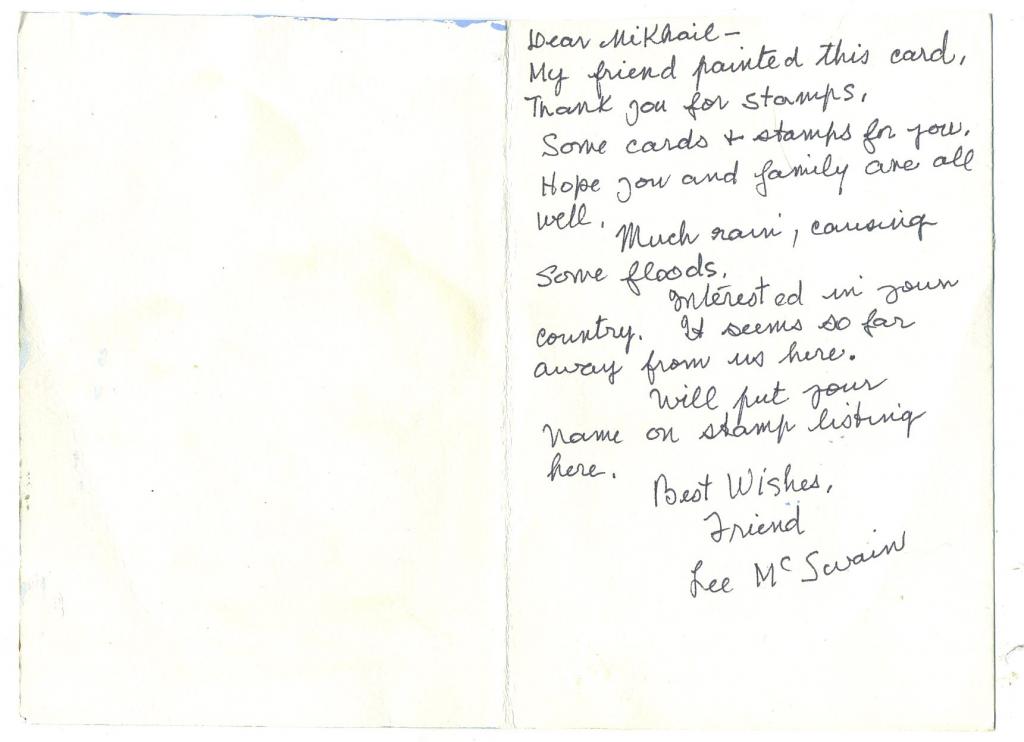 Dear Mikhail –
My friend painted this card,
Thank you for stamps,
Some cards + stamps for you.
Hope you and family are all
well.
Much rain, causing
some floods.
Interested in your
country. It seems so far
away from us here.
Will put your
name on stamp listing
here.
Best Wishes,
Friend
Lee McSwain